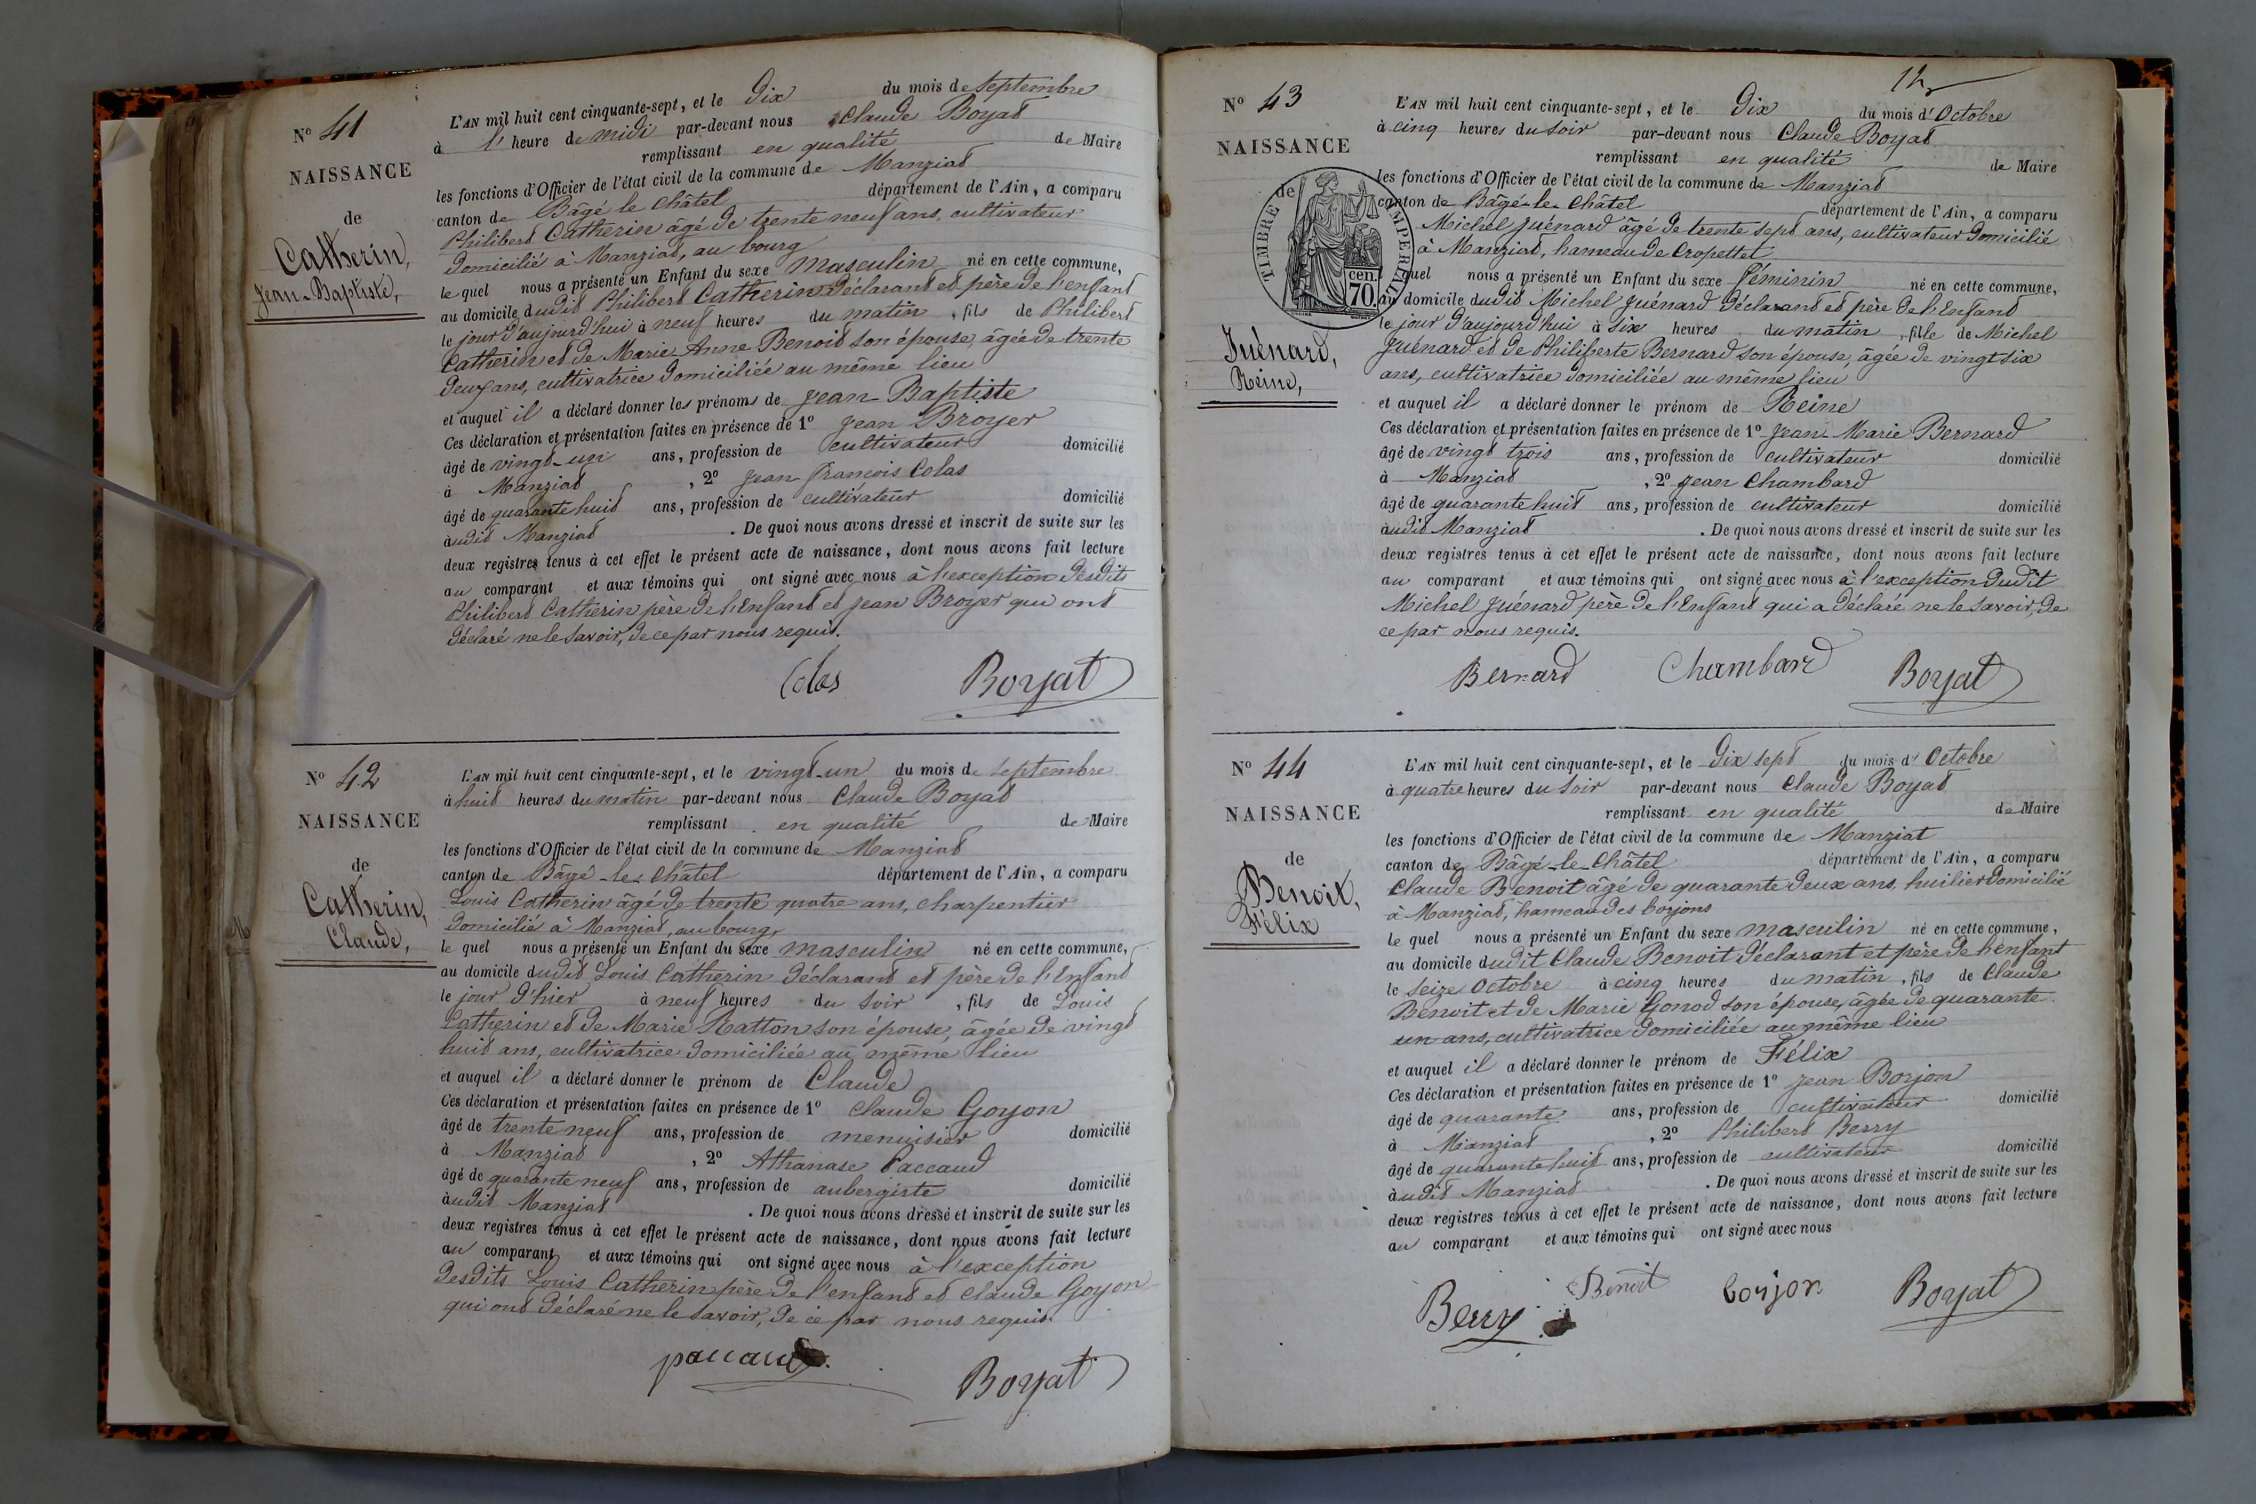 Nº 41
NAISSANCE
de
Catherin,
Jean-Baptiste,
L'AN mil huit cent cinquante-sept, et le Dix du mois de Septembre
à l'heure de midi par-devant nous Claude Boyat
remplissant en qualité de Maire
les fonctions d'Officier de l'état civil de la commune de Manziat
canton de Bâgé le Châtel département de l'Ain, a comparu
Philibert Catherin âgé de trente neuf ans, cultivateur
domicilié à Manziat, au bourg
lequel nous a présenté un Enfant du sexe Masculin né en cette commune,
au domicile dudit Philibert Catherin déclarant et père de l'enfant
le jour d'aujourd'hui à neuf heures du matin, fils de Philibert
Catherin et de Marie Anne Benoit son épouse, âgée de trente
deux ans, cultivatrice domiciliée au même lieu
et auquel il a déclaré donner les prénoms de Jean-Baptiste
Ces déclaration et présentation faites en présence de 1º Jean Broyer
âgé de vingt-un ans, profession de cultivateur domicilié
à Manziat, 2º Jean François Colas
âgé de quarante huit ans, profession de cultivateur domicilié
audit Manziat. De quoi nous avons dressé et inscrit de suite sur les
deux registres tenus à cet effet le présent acte de naissance, dont nous avons fait lecture
au comparant et aux témoins qui ont signé avec nous à l'exception desdits
Philibert Catherin père de l'enfant et Jean Broyer qui ont
déclaré ne le savoir, de ce par nous requis.
Colas Boyat
Nº 42
NAISSANCE
de
Catherin,
Claude,
L'AN mil huit cent cinquante-sept, et le vingt-un du mois de Septembre
à huit heures du matin par-devant nous Claude Boyat
remplissant en qualité de Maire
les fonctions d'Officier de l'état civil de la commune de Manziat
canton de Bâgé-le-Châtel département de l'Ain, a comparu
Louis Catherin âgé de trente quatre ans, charpentier
domicilié à Manziat, au bourg,
le quel nous a présenté un Enfant du sexe masculin né en cette commune,
au domicile dudit Louis Catherin déclarant et père de l'Enfant
le jour d'hier à neuf heures du soir, fils de Louis
Catherin et de Marie Ratton son épouse, âgée de vingt
huit ans, cultivatrice domiciliée au même lieu
et auquel il a déclaré donner le prénom de Claude
Ces déclaration et présentation faites en présence de 1º Claude Goyon
âgé de trente neuf ans, profession de menuisier domicilié
à Manziat, 2º Athanase Paccaud
âgé de quarante neuf ans, profession de aubergiste domicilié
audit Manziat. De quoi nous avons dressé et inscrit de suite sur les
deux registres tenus à cet effet le présent acte de naissance, dont nous avons fait lecture
au comparant et aux témoins qui ont signé avec nous à l'exception
desdits Louis Catherin père de l'enfant et Claude Goyon
qui ont déclaré ne le savoir, de ce par nous requis.
paccaud Boyat
12
Nº 43
NAISSANCE
de
TIMBRE IMPERIAL
70 cen.
Guénard,
Reine,
L'AN mil huit cent cinquante-sept, et le Dix du mois d'Octobre
à cinq heures du soir par-devant nous Claude Boyat
remplissant en qualité de Maire
les fonctions d'Officier de l'état civil de la commune de Manziat
canton de Bâgé-le-Châtel département de l'Ain, a comparu
Michel Guénard âgé de trente sept ans, cultivateur domicilié
à Manziat, hameau de Cropettet
lequel nous a présenté un Enfant du sexe féminin né en cette commune,
au domicile dudit Michel Guénard déclarant et père de l'Enfant
le jour d'aujourd'hui à six heures du matin, fille de Michel
Guénard et de Philiberte Bernard son épouse, âgée de vingt six
ans, cultivatrice domiciliée au même lieu
et auquel il a déclaré donner le prénom de Reine
Ces déclaration et présentation faites en présence de 1º Jean-Marie Bernard
âgé de vingt trois ans, profession de cultivateur domicilié
à Manziat, 2º Jean Chambard
âgé de quarante huit ans, profession de cultivateur domicilié
audit Manziat. De quoi nous avons dressé et inscrit de suite sur les
deux registres tenus à cet effet le présent acte de naissance, dont nous avons fait lecture
au comparant et aux témoins qui ont signé avec nous à l'exception dudit
Michel Guénard père de l'Enfant qui a déclaré ne le savoir, de
ce par nous requis.
Bernard Chambard Boyat
Nº 44
NAISSANCE
de
Benoit,
Félix
L'AN mil huit cent cinquante-sept, et le Dix sept du mois d'Octobre
à quatre heures du soir par-devant nous Claude Boyat
remplissant en qualité de Maire
les fonctions d'Officier de l'état civil de la commune de Manziat
canton de Bâgé-le-Châtel département de l'Ain, a comparu
Claude Benoit âgé de quarante deux ans, huilier domicilié
à Manziat, hameau des Borjons
le quel nous a présenté un Enfant du sexe masculin né en cette commune,
au domicile dudit Claude Benoit déclarant et père de l'enfant
le seize Octobre à cinq heures du matin, fils de Claude
Benoit et de Marie Gonod son épouse, âgée de quarante
un ans, cultivatrice domiciliée au même lieu
et auquel il a déclaré donner le prénom de Félix
Ces déclaration et présentation faites en présence de 1º Jean Borjon
âgé de quarante ans, profession de cultivateur domicilié
à Manziat, 2º Philibert Berry
âgé de quarante huit ans, profession de cultivateur domicilié
audit Manziat. De quoi nous avons dressé et inscrit de suite sur les
deux registres tenus à cet effet le présent acte de naissance, dont nous avons fait lecture
au comparant et aux témoins qui ont signé avec nous
Berry Benoit borjon Boyat